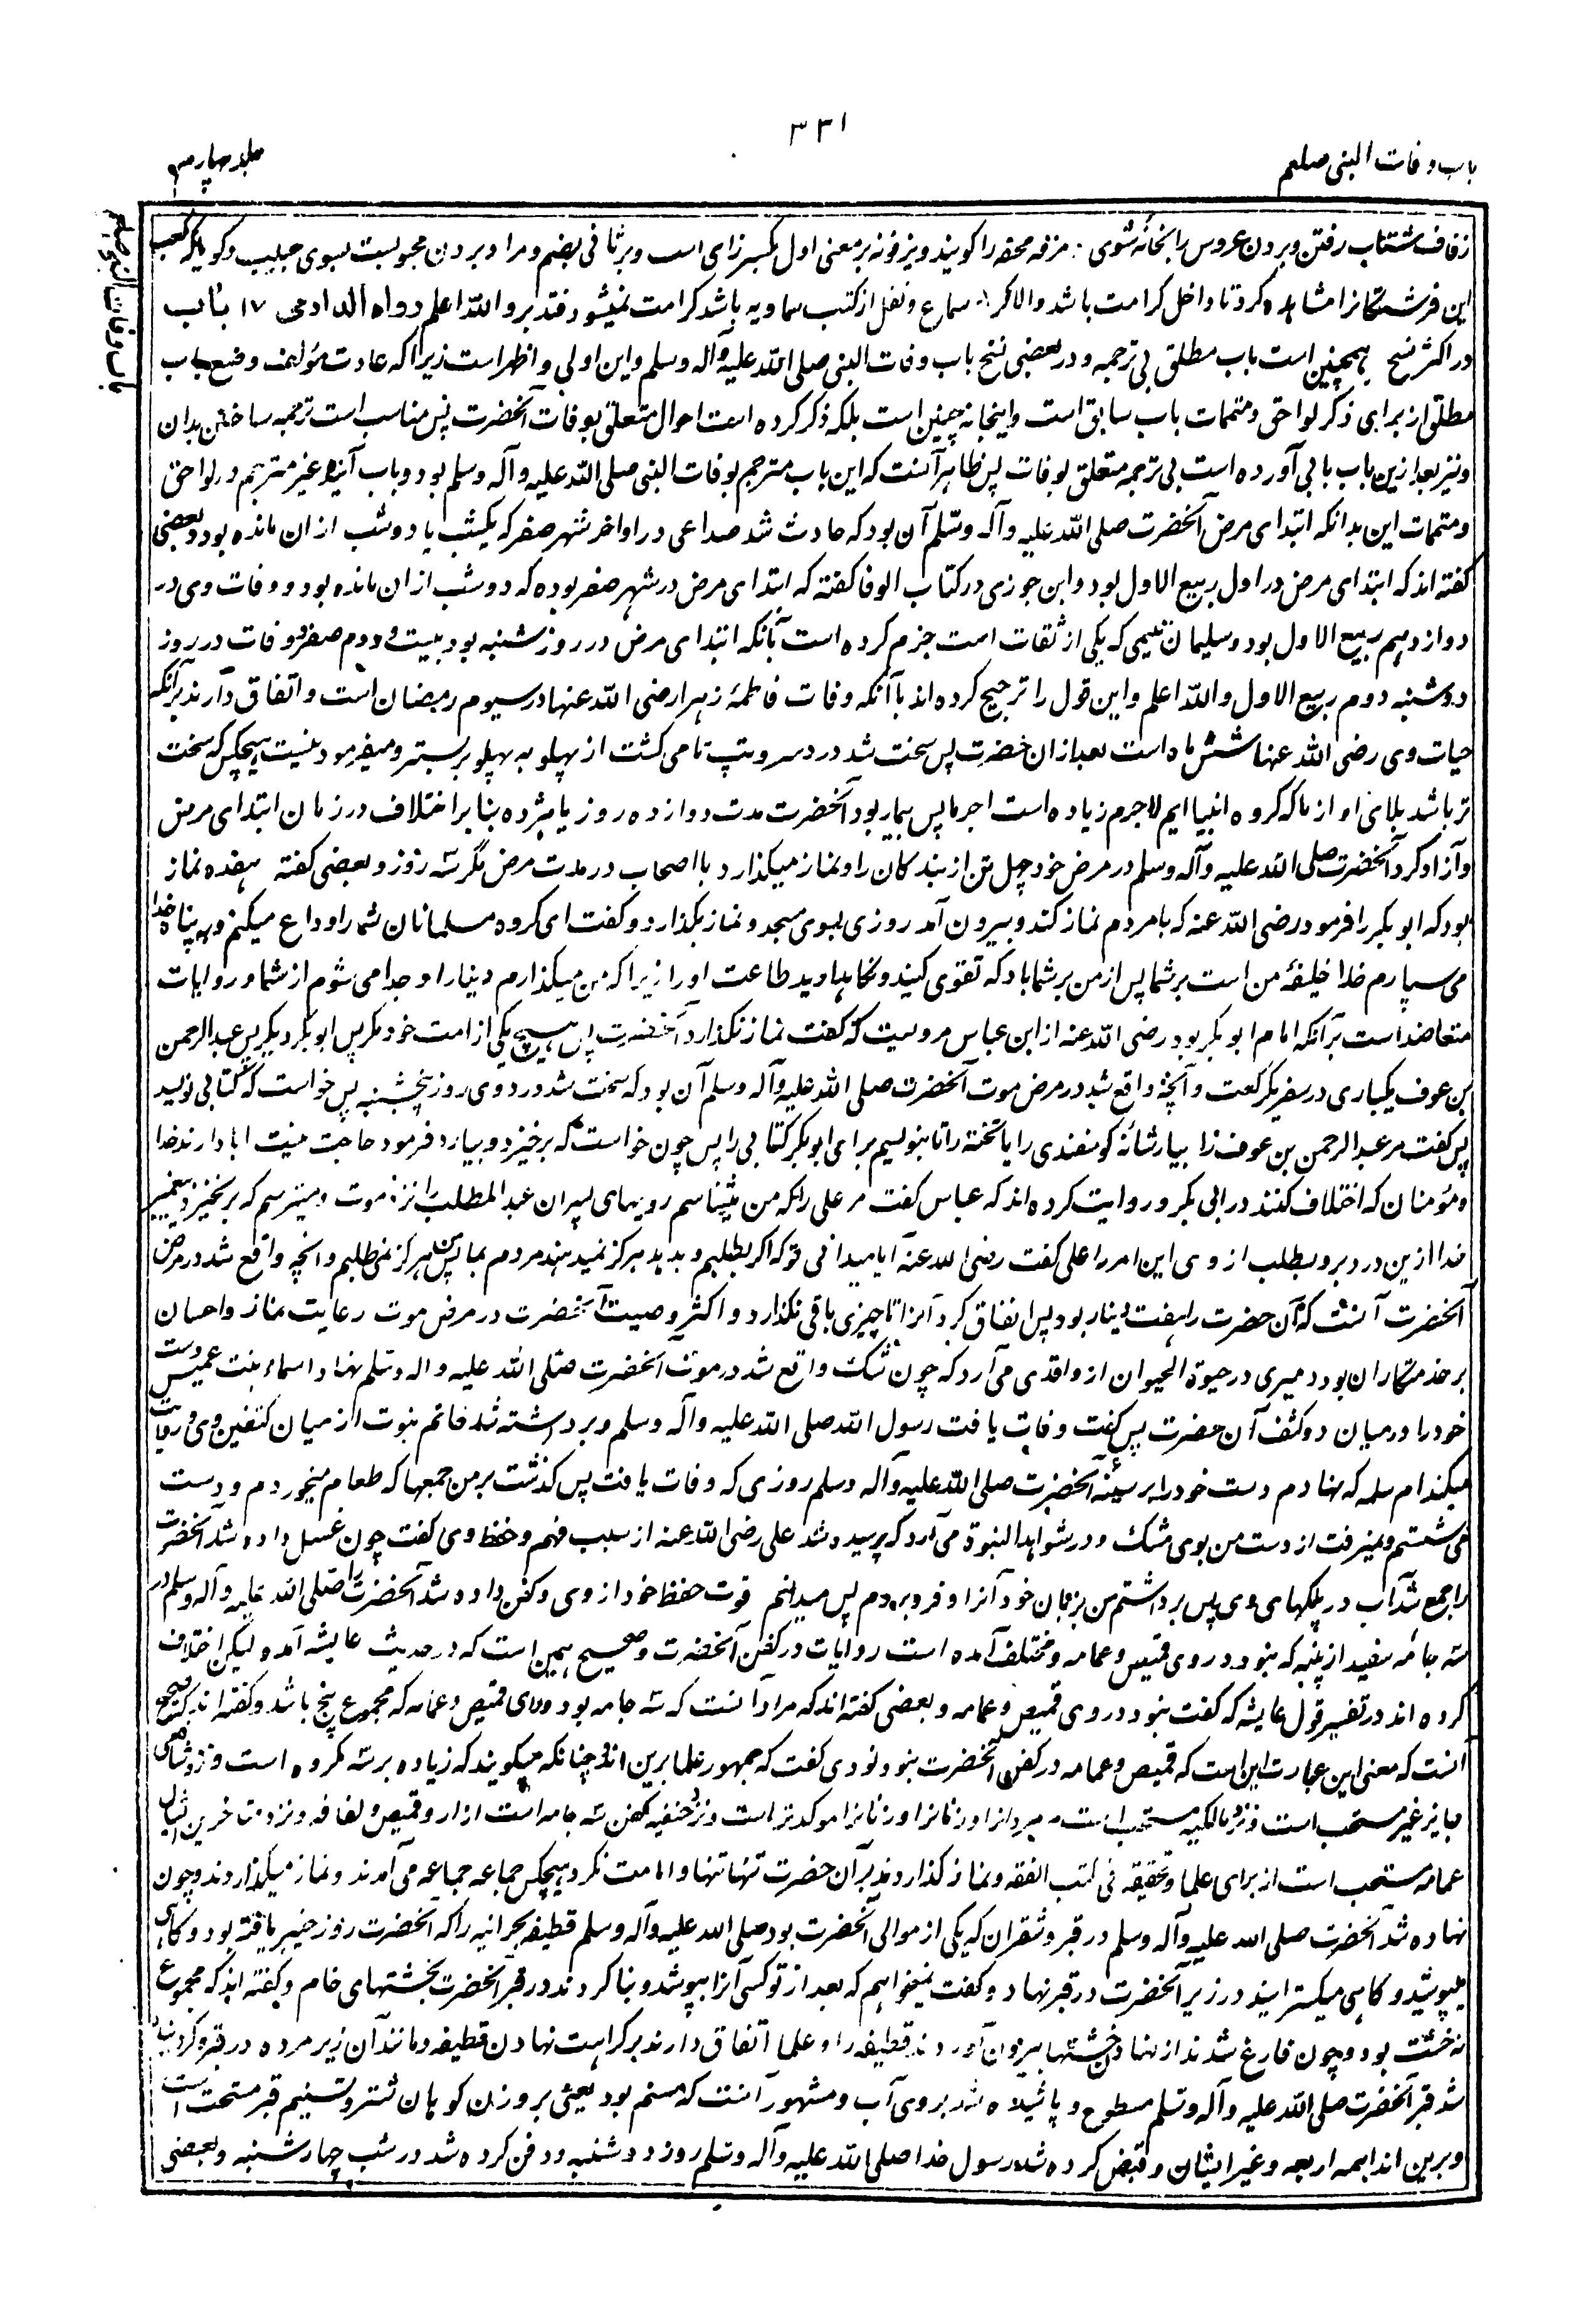 باب وفات النبی صلعم
۳۳۱
جلد چهارم
باب وفات النبی صلعم
زفاف شتاب رفتن و بردن عروس را بخانهٔ شوی مزفه محفه را گویند و یزفونه بر معنی اول بکسر زای است و بر ثانی بضم و مراد بردن محبوبست بسوی حبیب و گویا که کعب
این فرشتگانرا مشاهده کرد تا داخل کرامت باشد والا اگر سماع و نقل از کتب سماویه باشد کرامت نمیشود فتدبر والله اعلم رواه الدارمی ۱۷ باب
در اکثر نسخ همچنین است باب مطلق بی ترجمه و در بعضی نسخ باب وفات النبی صلی الله علیه وآله وسلم و این اولی و اظهر است زیرا که عادت مؤلف وضع باب
مطلق از برای ذکر لواحق و متممات باب سابق است و اینجا نه چنین است بلکه ذکر کرده است احوال متعلق بوفات آنحضرت پس مناسب است ترجمه ساختن بدان
و نیز بعد ازین باب بابی آورده است بی ترجمه متعلق بوفات پس ظاهر آنست که این باب مترجم بوفات النبی صلی الله علیه وآله وسلم بود و باب آینده غیر مترجم در لواحق
و متممات این بدانکه ابتدای مرض آنحضرت صلی الله علیه وآله وسلم آن بود که حادث شد صداعی در اواخر شهر صفر که یکشب یا دو شب از ان مانده بود و بعضی
گفته اند که ابتدای مرض در اول ربیع الاول بود و ابن جوزی در کتاب الوفا گفته که ابتدای مرض در شهر صفر بوده که دو شب از ان مانده بود و وفات وی در
دوازدهم ربیع الاول بود و سلیمان تیمی که یکی از ثقات است جزم کرده است بآنکه ابتدای مرض در روز شنبه بود بیست و دوم صفر و وفات در روز
دوشنبه دوم ربیع الاول والله اعلم و این قول را ترجیح کرده اند با آنکه وفات فاطمهٔ زهرا رضی الله عنها در سیوم رمضان است و اتفاق دارند بر آنکه
حیات وی رضی الله عنها شش ماه است بعد از ان حضرت پس سخت شد درد سر و تپ تا می گشت از پهلو به پهلو بر بستر و میفرمود نیست هیچکس که سخت
تر باشد بلای او از ما که گروه انبیا ایم لاجرم زیاده است اجر ما پس بیمار بود آنحضرت مدت دوازده روز یا هژده بنا بر اختلاف در زمان ابتدای مرض
و آزاد کرد آنحضرت صلی الله علیه وآله وسلم در مرض خود چهل تن از بندگان را و نماز میگذارد با اصحاب در مدت مرض مگر سه روز و بعضی گفته هفده نماز
بود که ابو بکر را فرمود رضی الله عنه که با مردم نماز کند و بیرون آمد روزی بسوی مسجد و نماز بگذارد و گفت ای گروه مسلمانان شما را وداع میکنم و به پناه خدا
می سپارم خدا خلیفهٔ من است بر شما پس از من بر شما باد که تقوی کنید و نگاهدارید طاعت او را زیرا که من میگذارم دنیا را و جدا می شوم از شما و روایات
متعاضد است بر آنکه امام ابو بکر بود رضی الله عنه از ابن عباس مرویست که گفت نماز نگذارد آنحضرت پس هیچ یکی از امت خود مگر پس ابو بکر و دیگر پس عبدالرحمن
بن عوف یکباری در سفر یک رکعت و آنچه واقع شد در مرض موت آنحضرت صلی الله علیه وآله وسلم آن بود که سخت شد درد وی روز پنجشنبه پس خواست که کتابی نویسد
پس گفت مر عبدالرحمن بن عوف را بیار شانهٔ گوسفندی را یا تخته را تا بنویسم برای ابو بکر کتابی را پس چون خواست که برخیزد و بیارد فرمود حاجت نیست ابا دارند خدا
و مؤمنان که اختلاف کنند در ابی بکر و روایت کرده اند که عباس گفت مر علی را که من میشناسم رویهای پسران عبدالمطلب را نزد موت و میترسم که برنخیزد پیغمبر
خدا ازین درد برو بطلب از وی این امر را علی گفت رضی الله عنه آیا میدانی تو که اگر بطلبم و ندهد هرگز نمیدهند مردم بما پس من هرگز نمی طلبم و آنچه واقع شد در مرض
آنحضرت آنست که آن حضرت را هفت دینار بود پس انفاق کرد آنرا تا چیزی باقی نگذارد و اکثر وصیت آنحضرت در مرض موت رعایت نماز و احسان
بر خدمتگاران بود و دمیری در حیوة الحیوان از واقدی می آرد که چون شک واقع شد در موت آنحضرت صلی الله علیه واله وسلم نهاد اسماء بنت عمیس دست
خود را در میان دو کتف آن حضرت پس گفت وفات یافت رسول الله صلی الله علیه وآله وسلم و برداشته شد خاتم نبوت از میان کتفین وی و روایت
میکند ام سلمه که نهادم دست خود را بر سینهٔ آنحضرت صلی الله علیه وآله وسلم روزی که وفات یافت پس گذشت بر من جمعها که طعام میخوردم و دست
می شستم و نمیرفت از دست من بوی مشک و در شواهد النبوة می آرد که پرسیده شد علی رضی الله عنه از سبب فهم و حفظ وی گفت چون غسل داده شد آنحضرت
را جمع شد آب در پلکهای وی پس برداشتم من بزبان خود آنرا و فرو بردم پس میدانم قوت حفظ خود از وی و کفن داده شد آنحضرت را صلی الله علیه وآله وسلم در
سه جامه سفید از پنبه که نبود در وی قمیص و عمامه و مختلف آمده است روایات در کفن آنحضرت و صحیح همین است که در حدیث عایشه آمد و لیکن اختلاف
کرده اند در تفسیر قول عایشه که گفت نبود در وی قمیص و عمامه و بعضی گفته اند که مراد آنست که سه جامه بود ورای قمیص و عمامه که مجموع پنج باشد و گفته اند که صحیح
آنست که معنی این عبارت این است که قمیص و عمامه در کفن آنحضرت نبود نووی گفت که جمهور علما برین اند چنانکه میگویند که زیاده بر سه مکروه است و نزد شافعی
جایز غیر مستحب است و نزد مالکیه مستحب است مردانرا و زنانرا و زنانرا موکدتر است و نزد حنفیه کفن سه جامه است ازار و قمیص و لفافه و نزد متاخرین ایشان
عمامه مستحب است از برای علما و تحقیقه فی کتب الفقه و نماز گذاردند بر آن حضرت تنها تنها و امامت نکرد هیچکس جماعه جماعه می آمدند و نماز میگذاردند و چون
نهاده شد آنحضرت صلی الله علیه وآله وسلم در قبر و شقران که یکی از موالی آنحضرت بود صلی الله علیه وآله وسلم قطیفه نجرانیه را که آنحضرت روز خیبر یافته بود و گاهی
میپوشید و گاهی میگسترانید در زیر آنحضرت در قبر نهاد و گفت نمیخواهم که بعد از تو کسی آنرا بپوشد و بنا کردند در قبر آنحضرت بخشتهای خام و گفته اند که مجموع
نه خشت بود و چون فارغ شدند از نهادن خشتها بیرون آوردند قطیفه را و علما اتفاق دارند بر کراهت نهادن قطیفه و مانند آن زیر مرده در قبر و کرده
شد قبر آنحضرت صلی الله علیه وآله وسلم مسطوح و پاشیده شد بر وی آب و مشهور آنست که مسنم بود یعنی بر وزن کوهان شتر و تسنیم قبر مستحب است
و برین اند ایمه اربعه و غیر ایشان و قبض کرده شد رسول خدا صلی الله علیه وآله وسلم روز دوشنبه و دفن کرده شد در شب چهارشنبه و بعضی